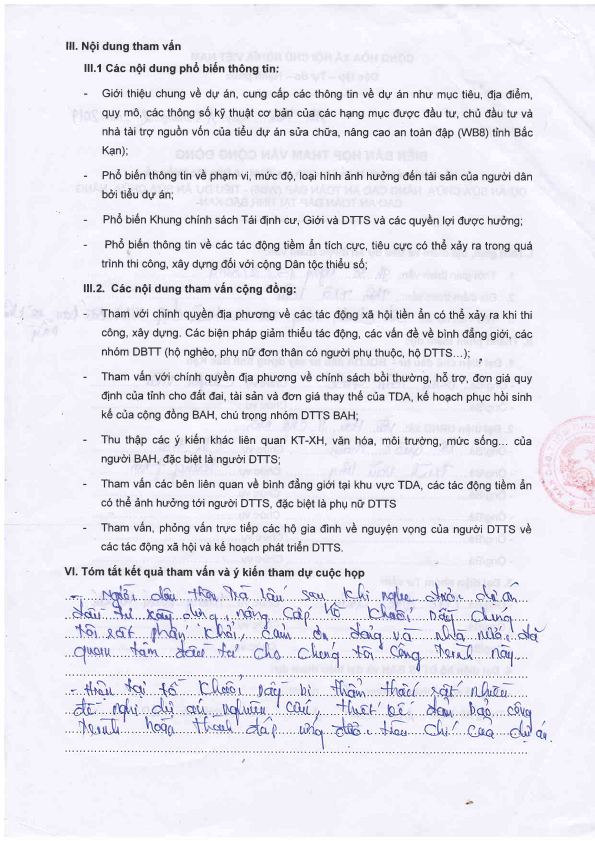 III. Nội dung tham vấn
III.1 Các nội dung phổ biến thông tin:
- Giới thiệu chung về dự án, cung cấp các thông tin về dự án như mục tiêu, địa điểm,
quy mô, các thông số kỹ thuật cơ bản của các hạng mục được đầu tư, chủ đầu tư và
nhà tài trợ nguồn vốn của tiểu dự án sửa chữa, nâng cao an toàn đập (WB8) tỉnh Bắc
Kạn);
- Phổ biến thông tin về phạm vi, mức độ, loại hình ảnh hưởng đến tài sản của người dân
bởi tiểu dự án;
- Phổ biến Khung chính sách Tái định cư, Giới và DTTS và các quyền lợi được hưởng;
- Phổ biến thông tin về các tác động tiềm ẩn tích cực, tiêu cực có thể xảy ra trong quá
trình thi công, xây dựng đối với cộng Dân tộc thiểu số;
III.2. Các nội dung tham vấn cộng đồng:
- Tham với chính quyền địa phương về các tác động xã hội tiền ẩn có thể xảy ra khi thi
công, xây dựng. Các biện pháp giảm thiểu tác động, các vấn đề về bình đẳng giới, các
nhóm DBTT (hộ nghèo, phụ nữ đơn thân có người phụ thuộc, hộ DTTS…);
- Tham vấn với chính quyền địa phương về chính sách bồi thường, hỗ trợ, đơn giá quy
định của tỉnh cho đất đai, tài sản và đơn giá thay thế của TDA, kế hoạch phục hồi sinh
kế của cộng đồng BAH, chú trọng nhóm DTTS BAH;
- Thu thập các ý kiến khác liên quan KT-XH, văn hóa, môi trường, mức sống… của
người BAH, đặc biệt là người DTTS;
- Tham vấn các bên liên quan về bình đẳng giới tại khu vực TDA, các tác động tiềm ẩn
có thể ảnh hưởng tới người DTTS, đặc biệt là phụ nữ DTTS
- Tham vấn, phỏng vấn trực tiếp các hộ gia đình về nguyện vọng của người DTTS về
các tác động xã hội và kế hoạch phát triển DTTS.
VI. Tóm tắt kết quả tham vấn và ý kiến tham dự cuộc họp
- Người dân thôn Nà lẩu sau khi nghe được dự án
đầu tư xây dựng, nâng cấp hồ Khuổi Dầy chúng
tôi rất phấn khởi, cảm ơn đảng và nhà nước đã
quan tâm đầu tư cho chúng tôi công trình này
- Hiện tại hồ Khuổi Dầy bị thẩm thấu rất nhiều
đề nghị dự án nghiên cứu, thiết kế đảm bảo công
trình hoàn thành đáp ứng được tiêu chí của dự án.